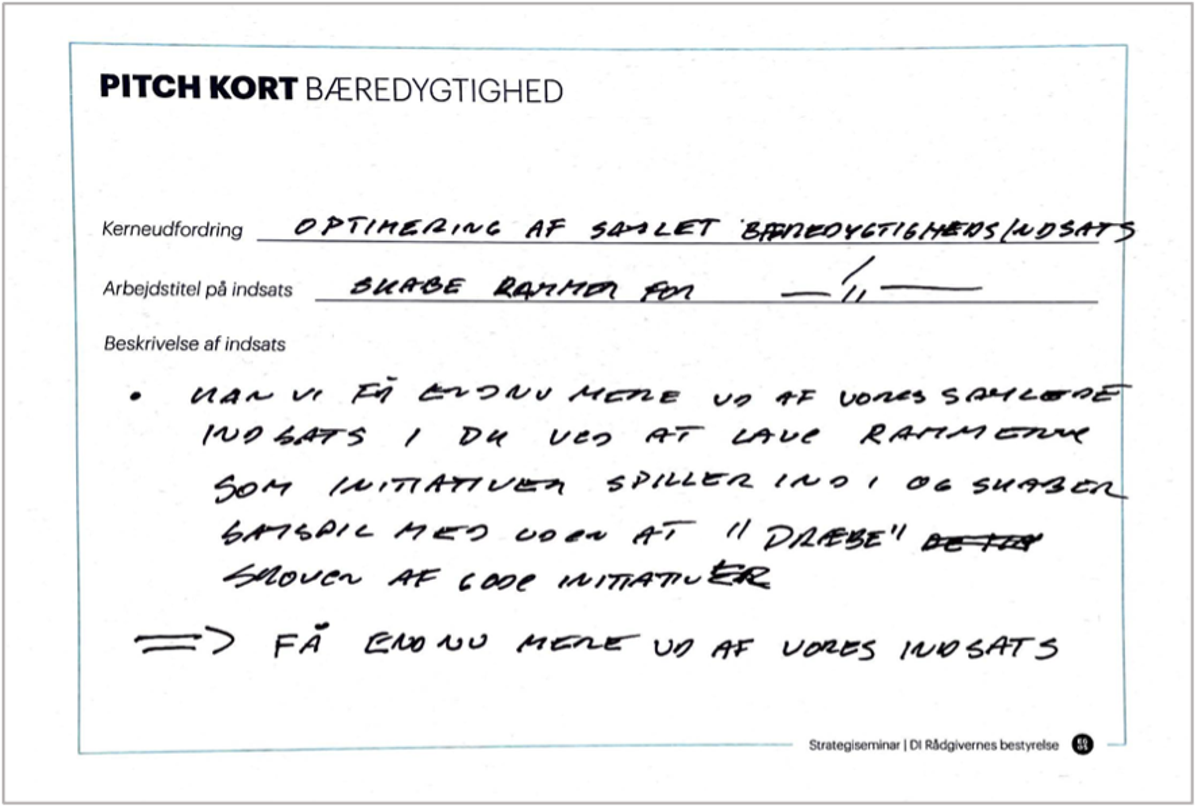 PITCH KORT BÆREDYGTIGHED
Kerneudfordring OPTIMERING AF SAMLET BÆREDYGTIGHEDSINDSATS
Arbejdstitel på indsats SKABE RAMMER FOR —"—
Beskrivelse af indsats
• KAN VI FÅ ENDNU MERE UD AF VORES SAMLEDE
INDSATS I DK VED AT LAVE RAMMERNE
SOM INITIATIVER SPILLER IND I OG SKABER
SAMSPIL MED UDEN AT "DRÆBE"
SKOVEN AF GODE INITIATIVER
=> FÅ ENDNU MERE UD AF VORES INDSATS
Strategiseminar | DI Rådgivernes bestyrelse